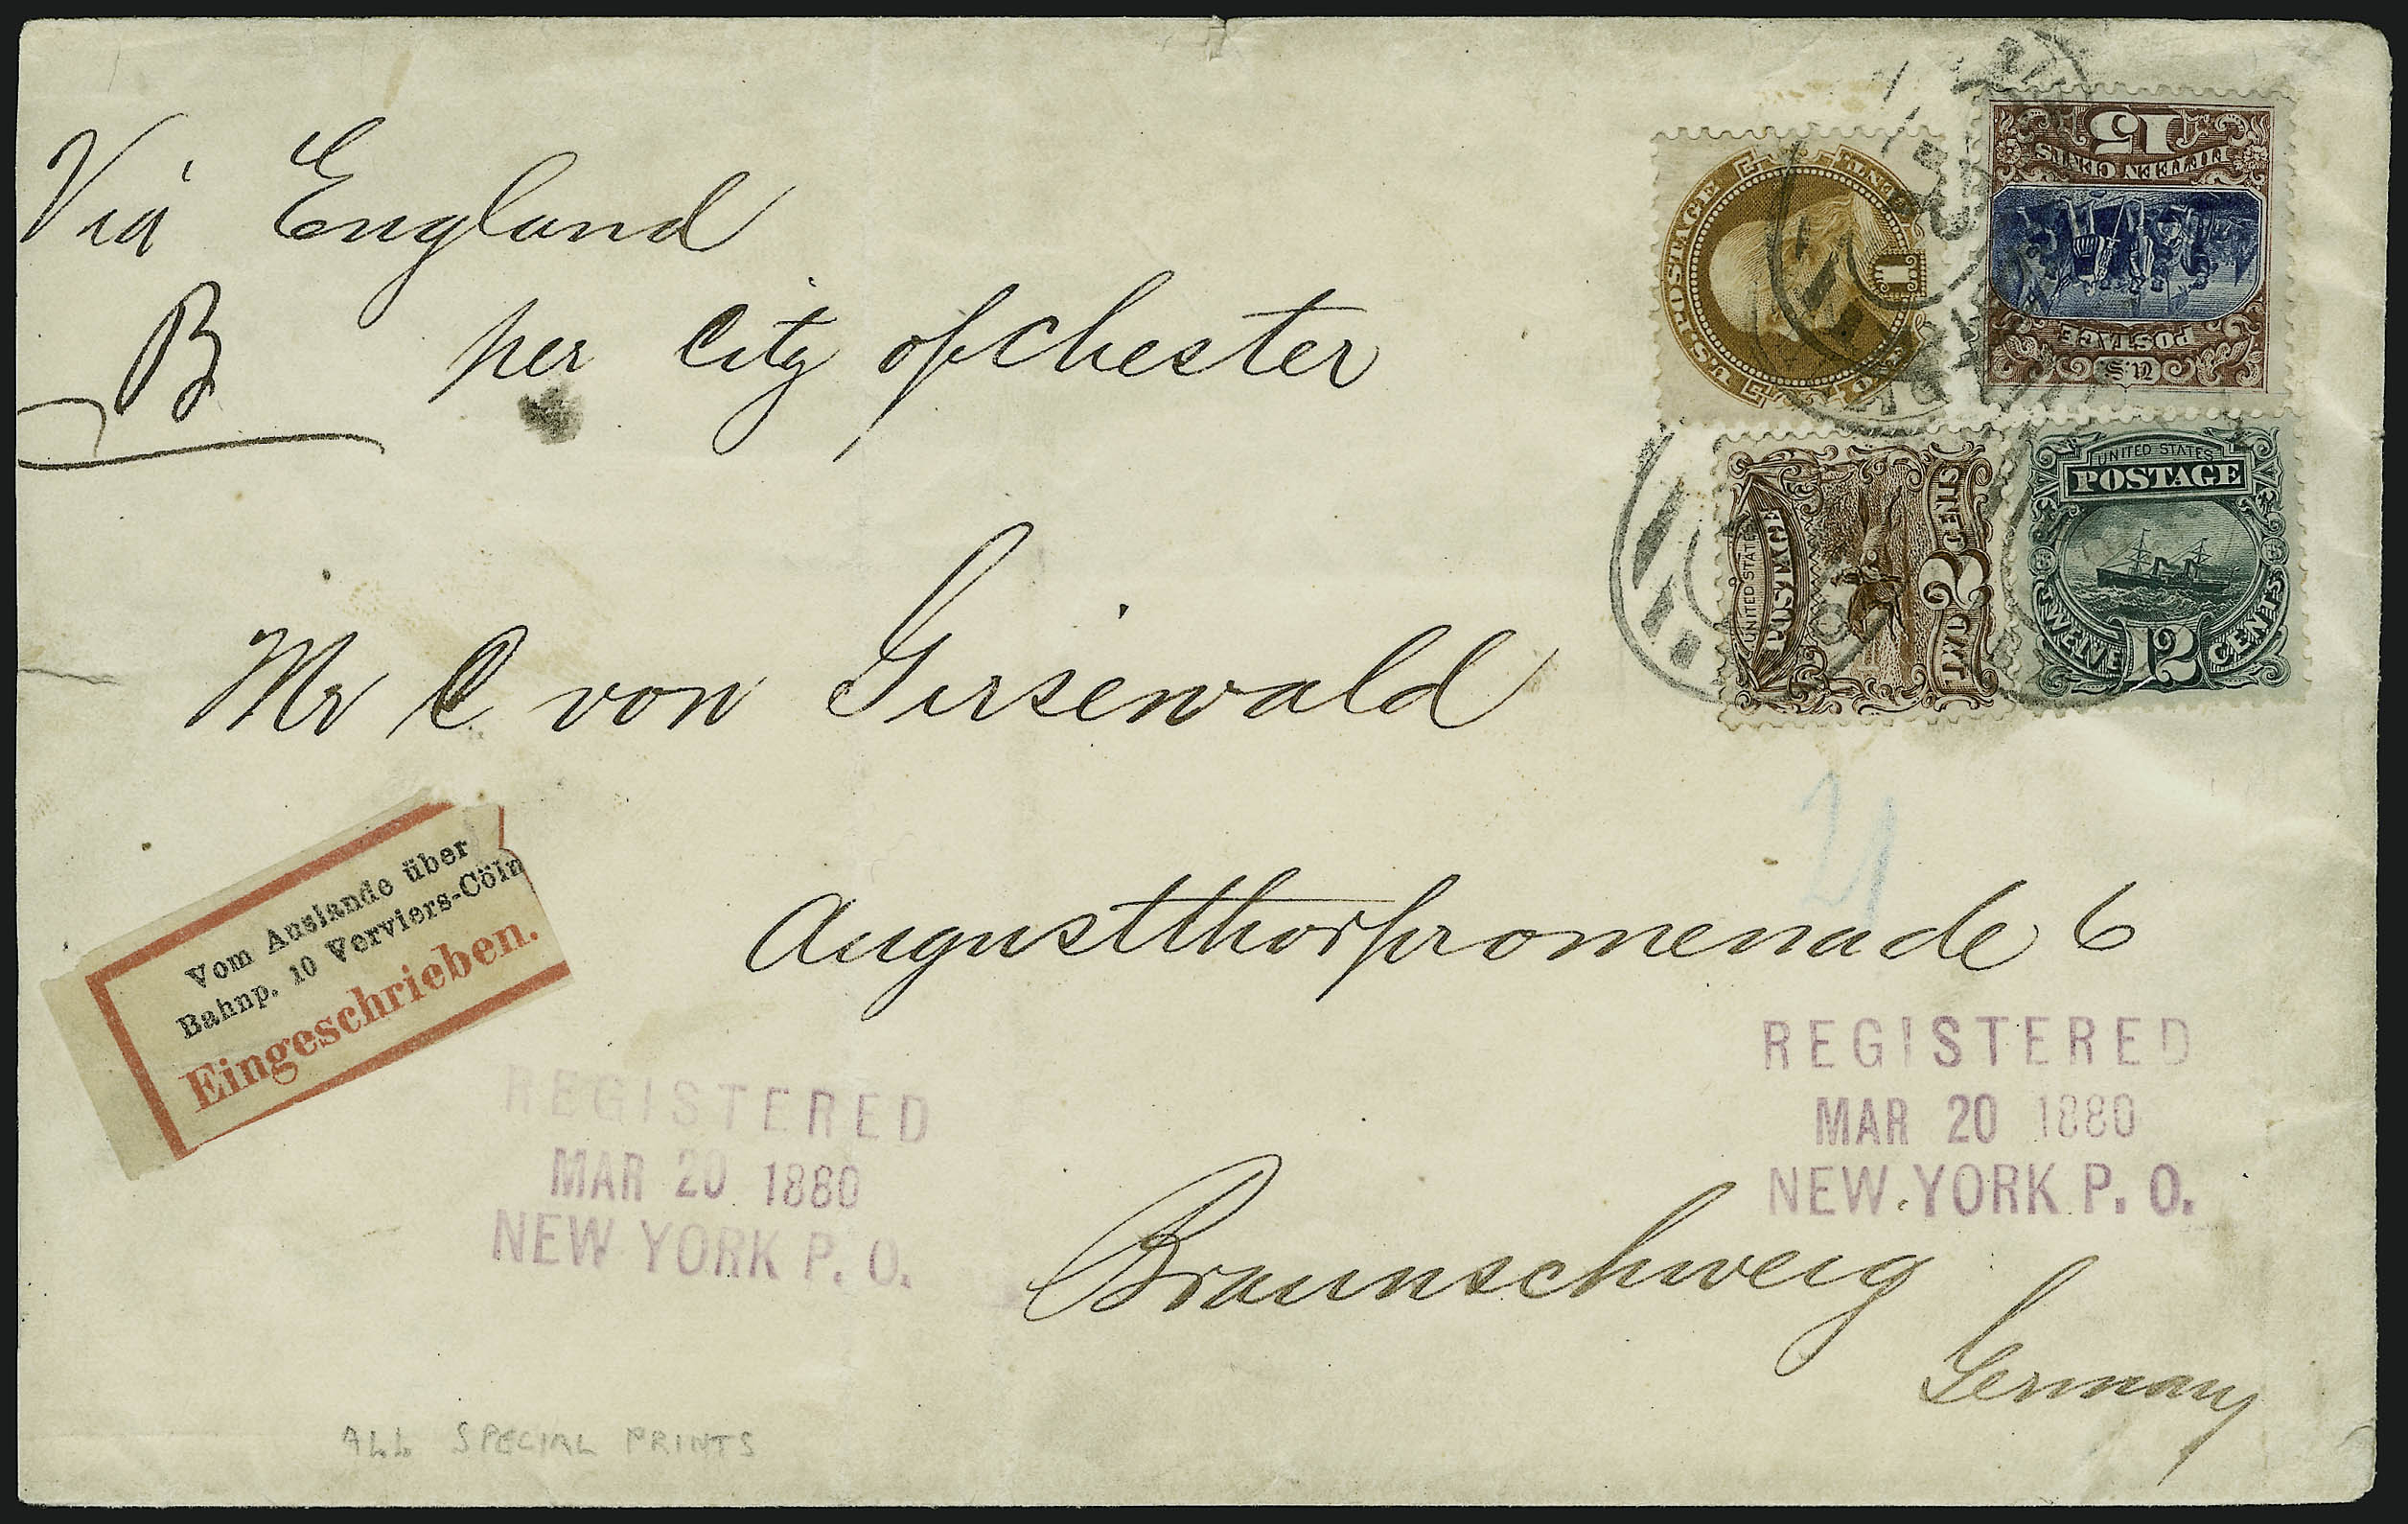 Via England
B per City of Chester
U.S. POSTAGE
ONE CENT
1
15
FIFTEEN CENTS
U.S.
POSTAGE
UNITED STATES
POSTAGE
TWO 2 CENTS
UNITED STATES
POSTAGE
TWELVE 12 CENTS
Mr C von Girsewald
Augustthorpromenade 6
Braunschweig
Germany
21
Vom Auslande über
Bahnp. 10 Verviers-Cöln
Eingeschrieben.
REGISTERED
MAR 20 1880
NEW YORK P. O.
REGISTERED
MAR 20 1880
NEW YORK P. O.
ALL SPECIAL PRINTS